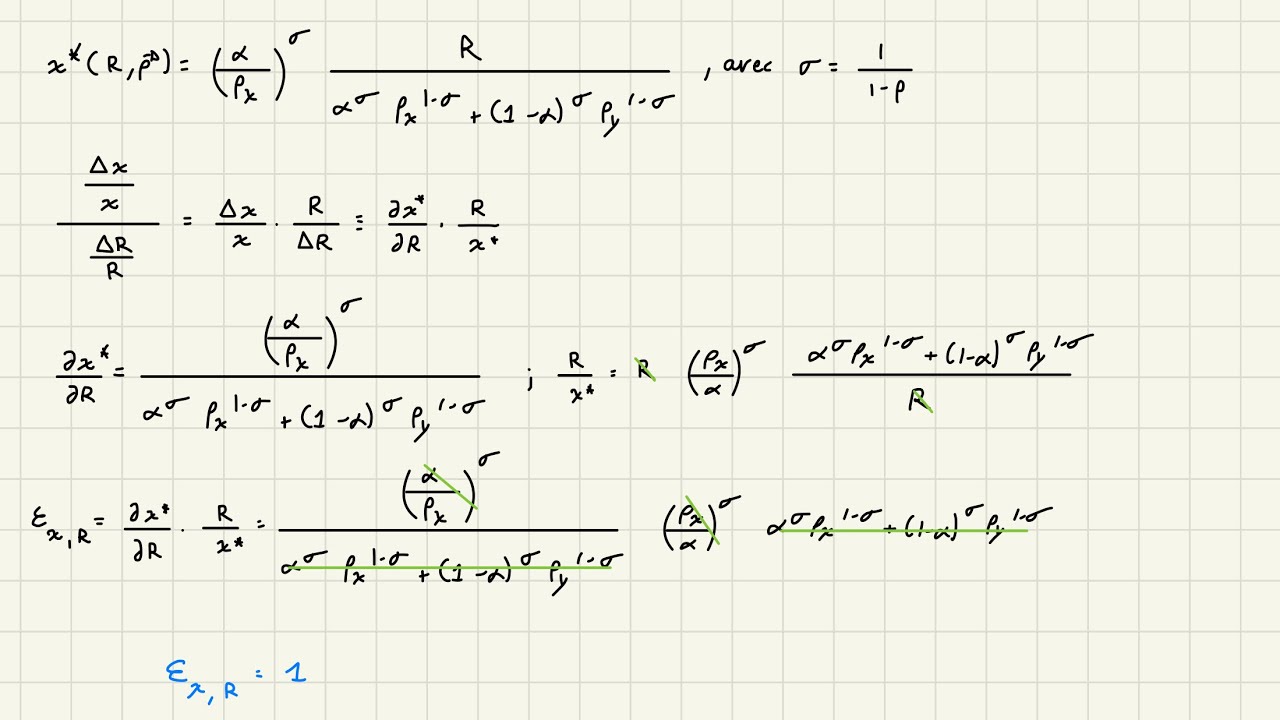 x*(R, p⃗) = (α/Px)^σ R/(α^σ Px^(1-σ) + (1-α)^σ Py^(1-σ)) , avec σ = 1/(1-ρ)
(Δx/x)/(ΔR/R) = Δx/x · R/ΔR ≡ ∂x*/∂R · R/x*
∂x*/∂R = (α/Px)^σ/(α^σ Px^(1-σ) + (1-α)^σ Py^(1-σ)) ; R/x* = R (Px/α)^σ (α^σ Px^(1-σ) + (1-α)^σ Py^(1-σ))/R
ε_x,R = ∂x*/∂R · R/x* = (α/Px)^σ/(α^σ Px^(1-σ) + (1-α)^σ Py^(1-σ)) (Px/α)^σ α^σ Px^(1-σ) + (1-α)^σ Py^(1-σ)
ε_x,R = 1